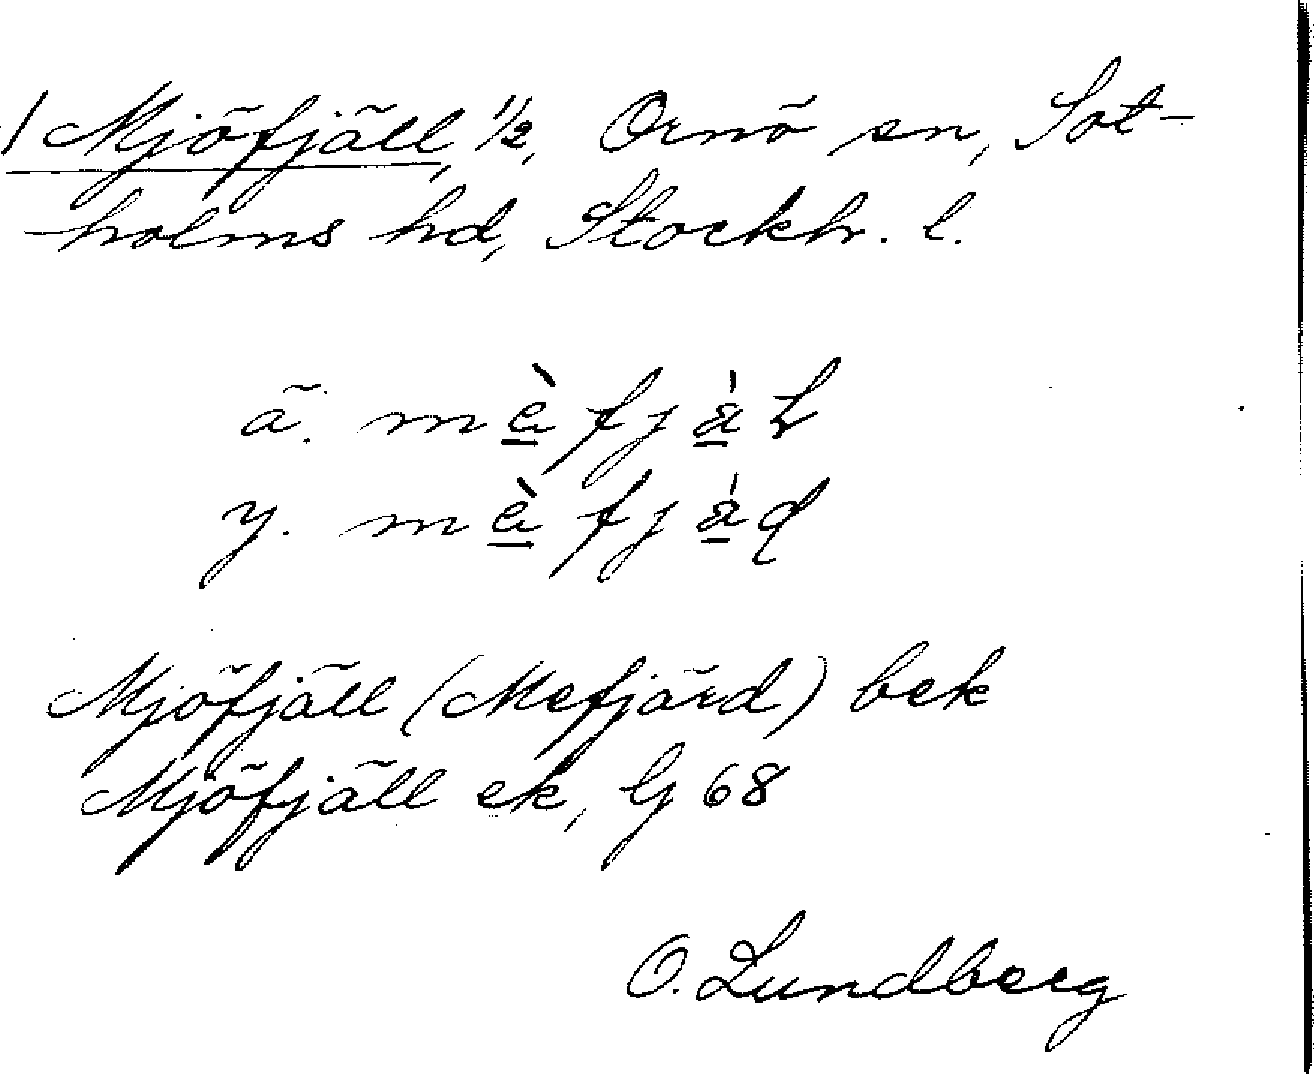 Mjöfjäll, 1/2, Ornö sn, Sot-
holms hd, Stockh. l.
ä.
y.
Mjöfjäll (Mefjärd) bek
Mjöfjäll ek, G 68
O. Lundberg